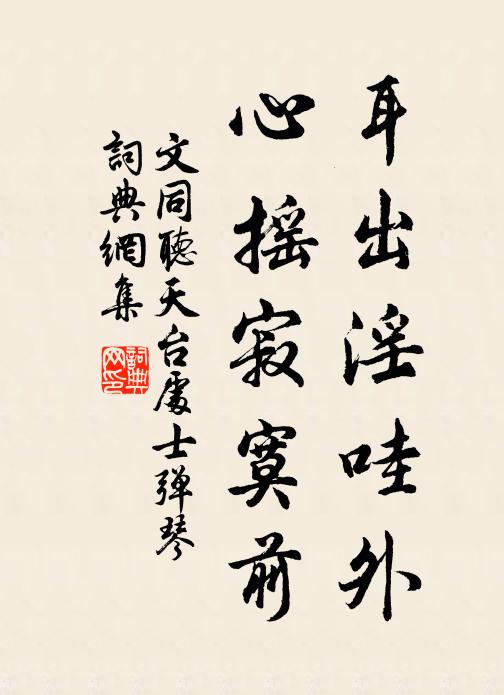 耳出淫哇外
心摇寂寞前
文同聽天台處士弹琴
詞典網集
詞典网印